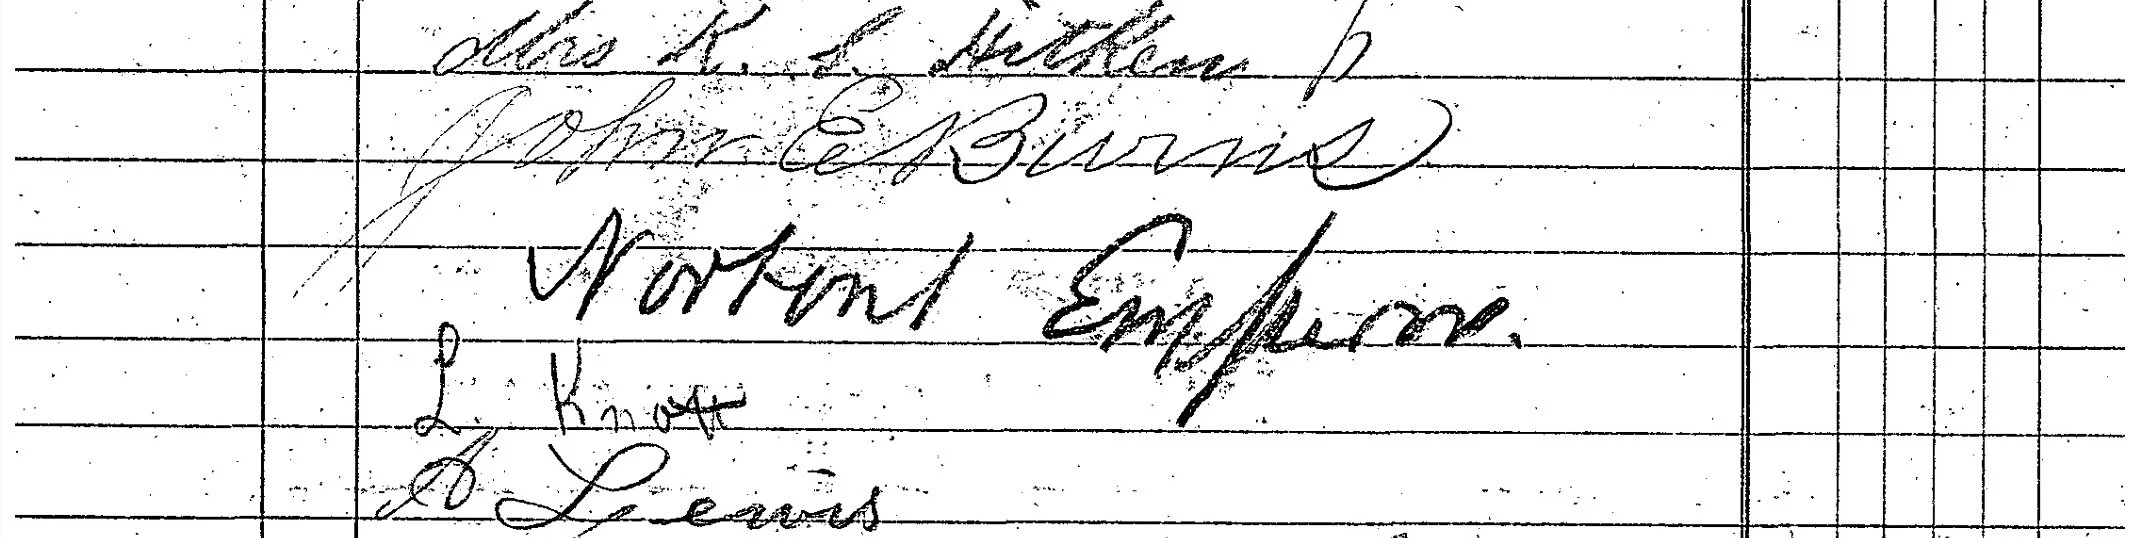 Mrs K. L. Aitken Jr
John E Burns
Norton 1 Emperor.
L. Knott
A Lewis